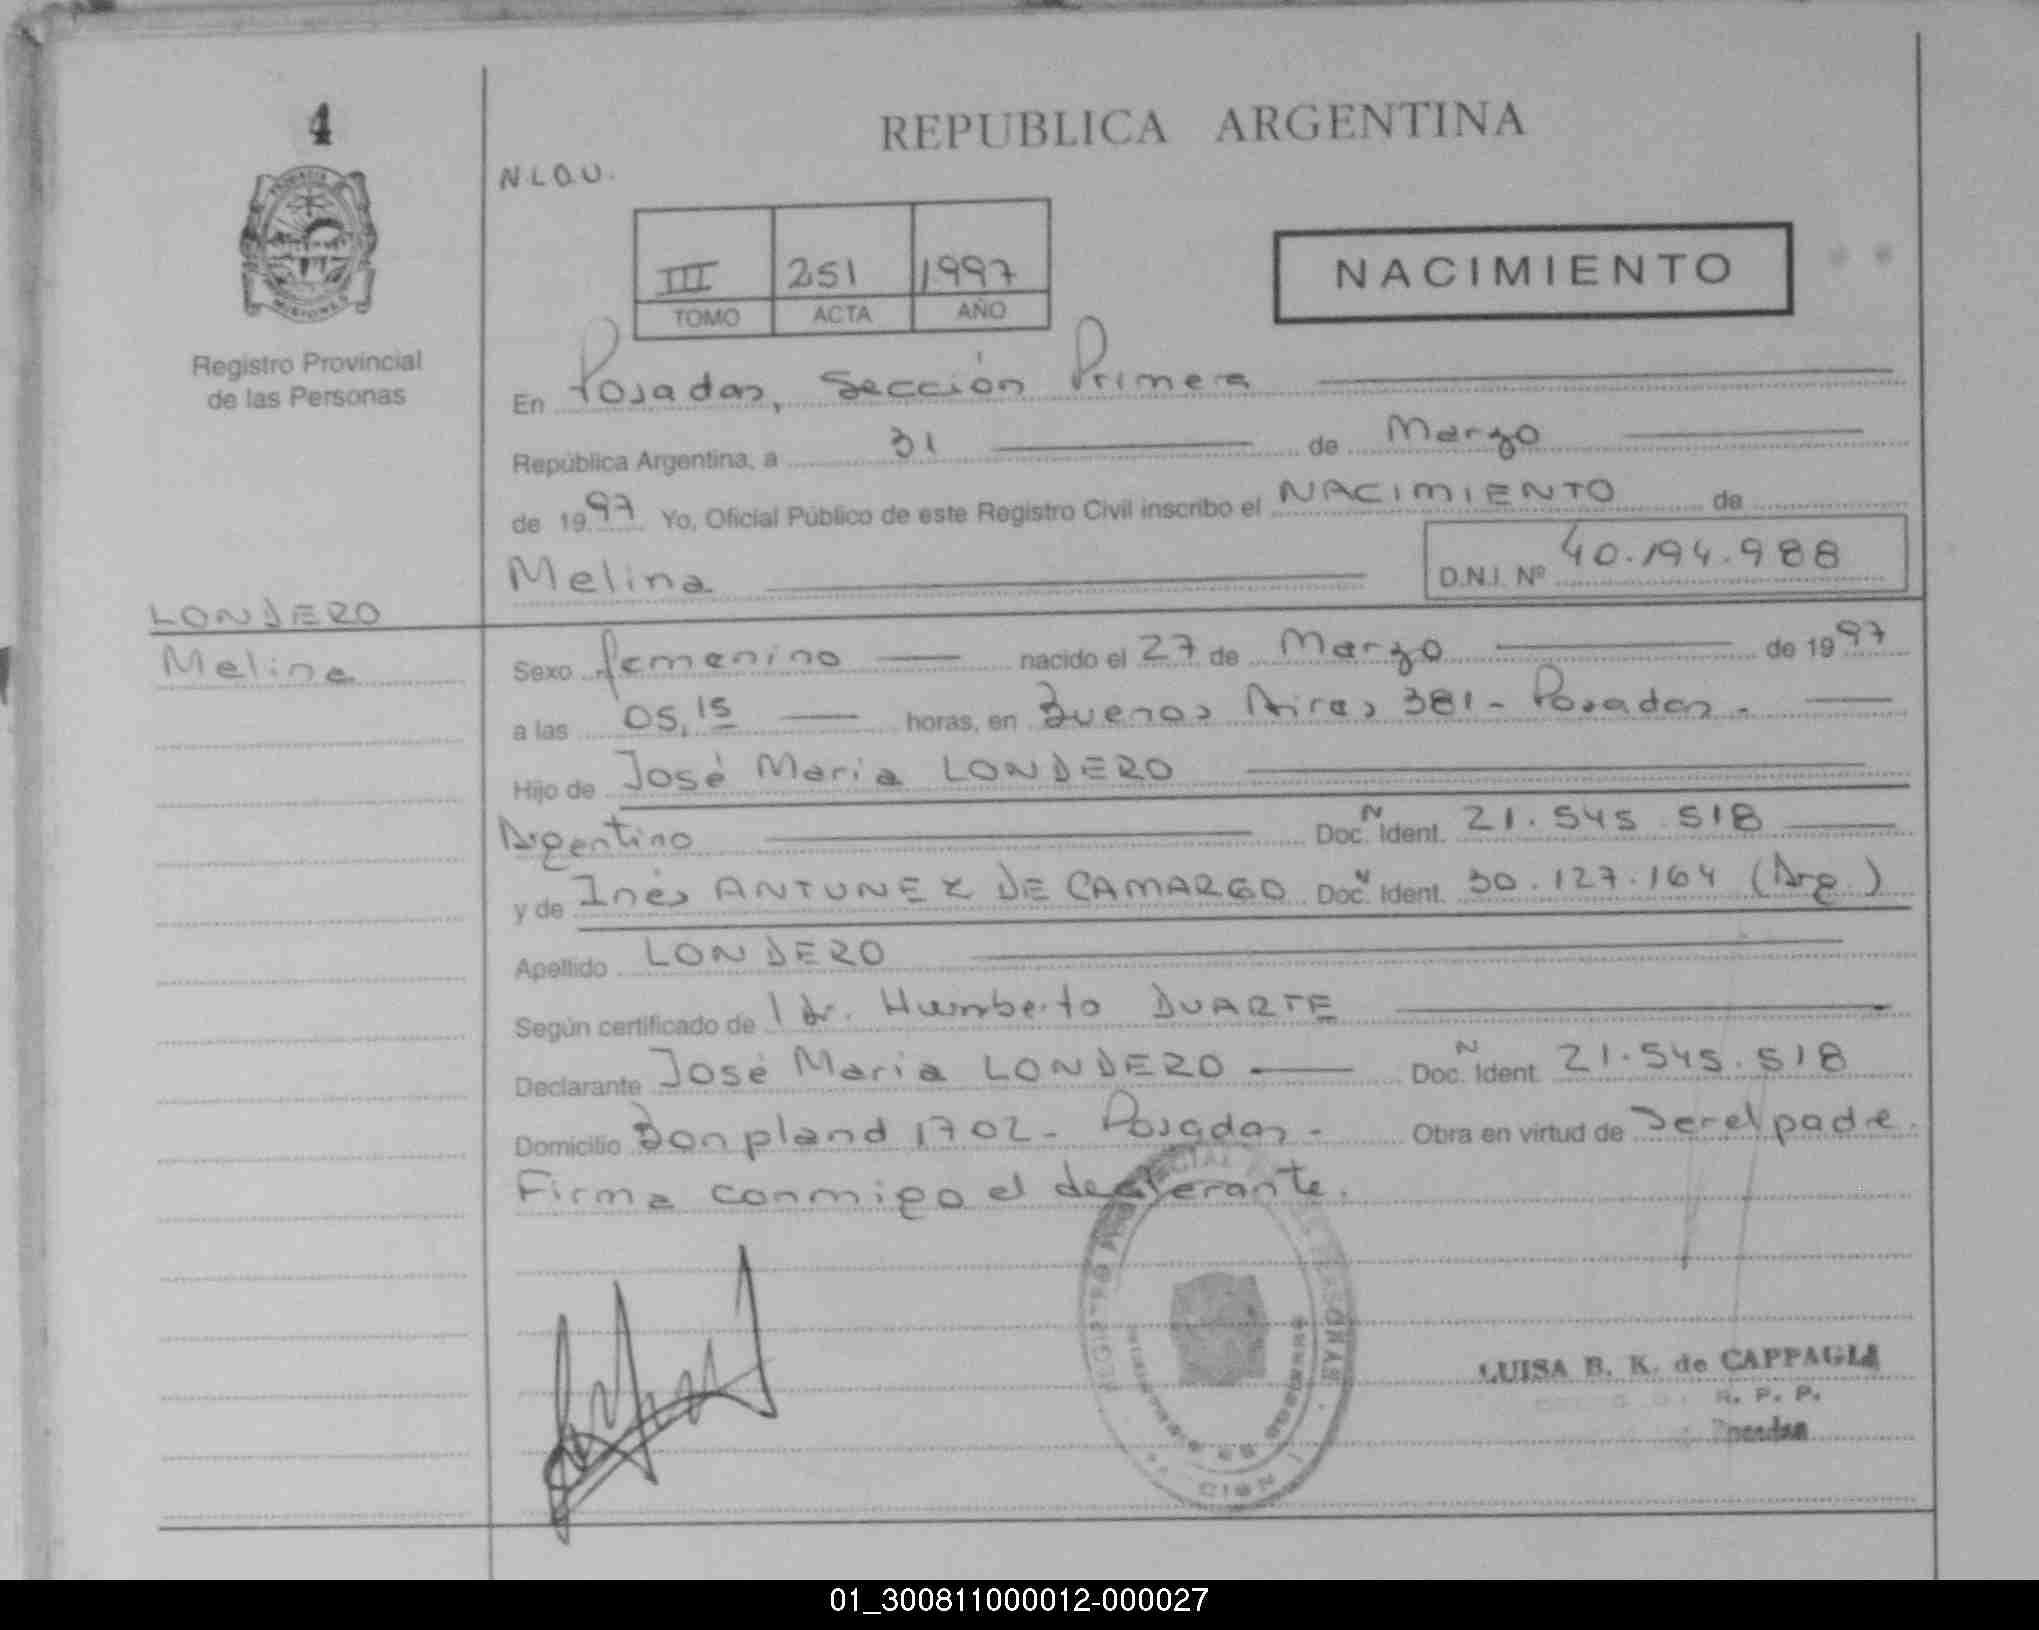 4
REPUBLICA ARGENTINA
N.L.O.U.
III 251 1997
TOMO ACTA AÑO
NACIMIENTO
PROVINCIA
MISIONES
Registro Provincial
de las Personas
En Posadas, Sección Primera
República Argentina, a 31 de Marzo
de 1997 Yo, Oficial Público de este Registro Civil inscribo el NACIMIENTO de
Melina D.N.I. Nº 40.194.988
LONDERO
Melina
Sexo femenino nacido el 27 de Marzo de 1997
a las 05,15 horas, en Buenos Aires 381 - Posadas -
Hijo de José Maria LONDERO
Argentino Doc. N Ident. 21.545.518
y de Inés ANTUNEZ DE CAMARGO Doc. N Ident. 30.127.164 (Arg.)
Apellido LONDERO
Según certificado de l dr. Humberto DUARTE
Declarante José Maria LONDERO Doc. N Ident. 21.545.518
Domicilio Bonpland 1702 - Posadas - Obra en virtud de ser el padre.
Firma conmigo el declarante.
LUISA B. K. de CAPPAGLI
R. P. P.
Posadas
01_300811000012-000027